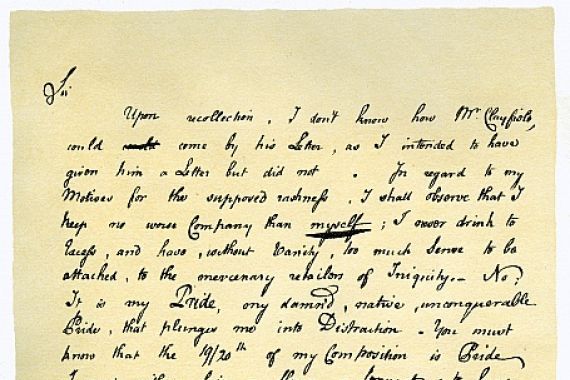 Sir
Upon recollection, I don't know how Mr Clayfield,
could come by his Letter, as I intended to have
given him a Letter but did not. In regard to my
Motives for the supposed rashness, I shall observe that I
keep no worse Company than myself; I never drink to
Excess, and have, without Vanity, too much Sense to be
attached, to the mercenary retailers of Iniquity.— No;
It is my Pride, my damn'd, native, unconquerable
Pride, that plunges me into Distraction. You must
know that the 19/20th of my Composition is Pride